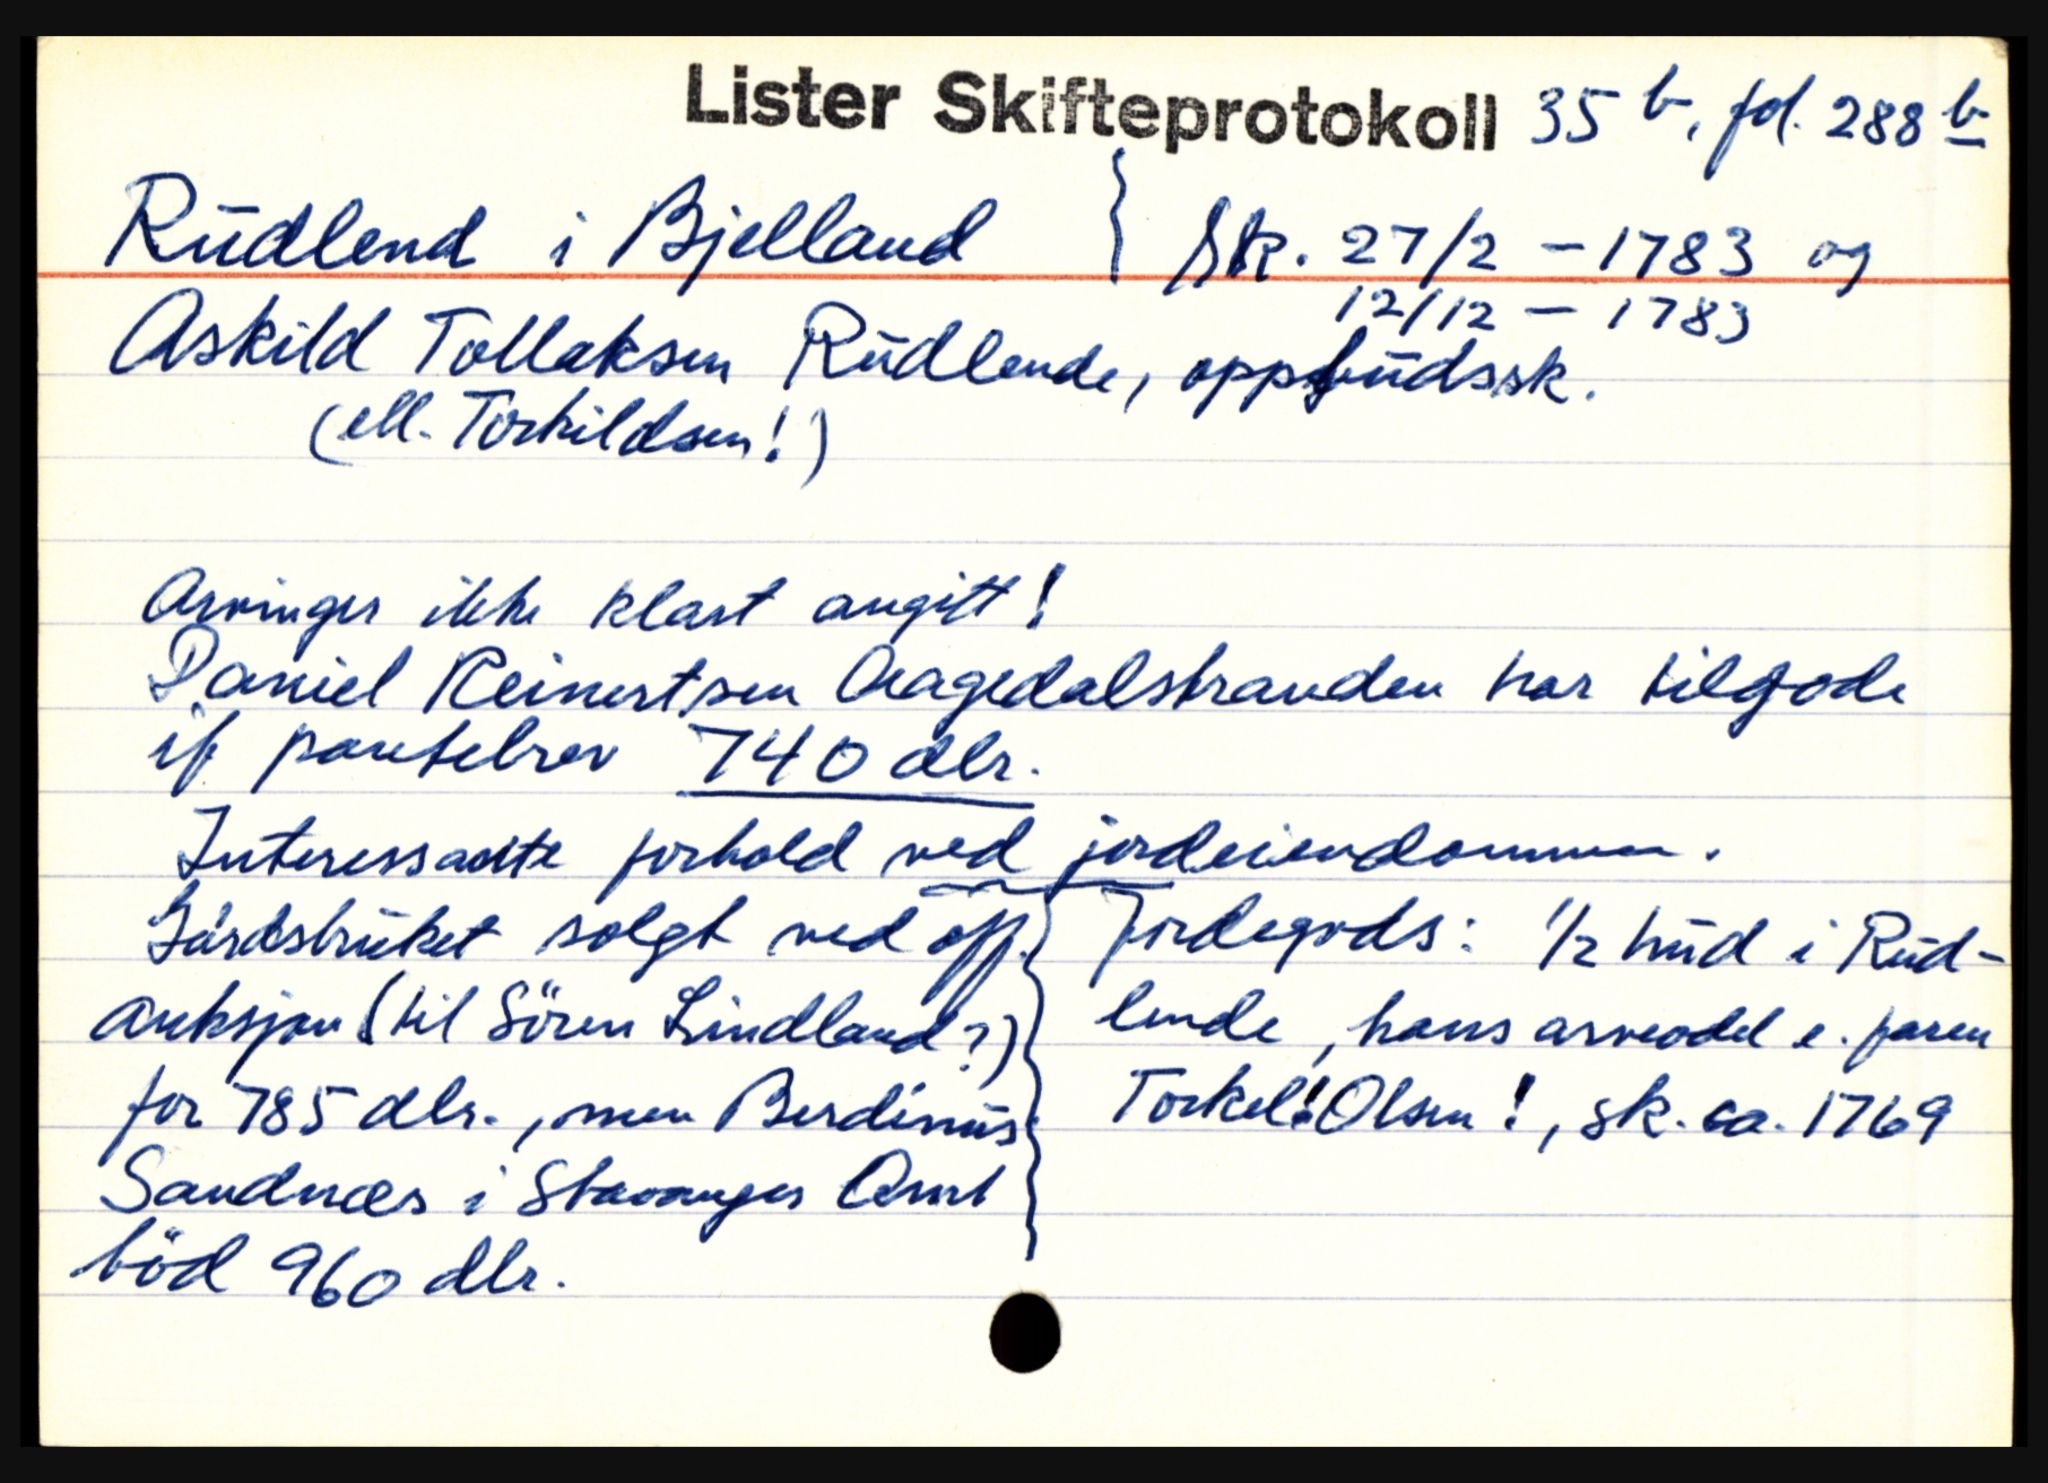 Lister Skifteprotokoll 35 b, fol. 288 b
Rūdlend i Bjelland } Sk. 27/2 – 1783 og
12/12 – 1783
Askild Tollaksen Rūdlende, oppbūdssk.
(ell. Torkildsen!)
Arvinger ikke klart angitt!
Daniel Reinertsen Aagedalstranden har tilgode
if pantebrev 740 dlr.
Interessante forhold ved jordeiendommen.
Gårdsbrūket solgt ved off.
auksjon (til Sören Lindland?)
for 785 dlr., men Berdinūs
Sandnæs i Stavanger Amt
böd 960 dlr.
Jordegods: 1/2 hūd i Rūd-
lende, hans arveodel e. faren
Torkel! Olsen!, sk. ca. 1769